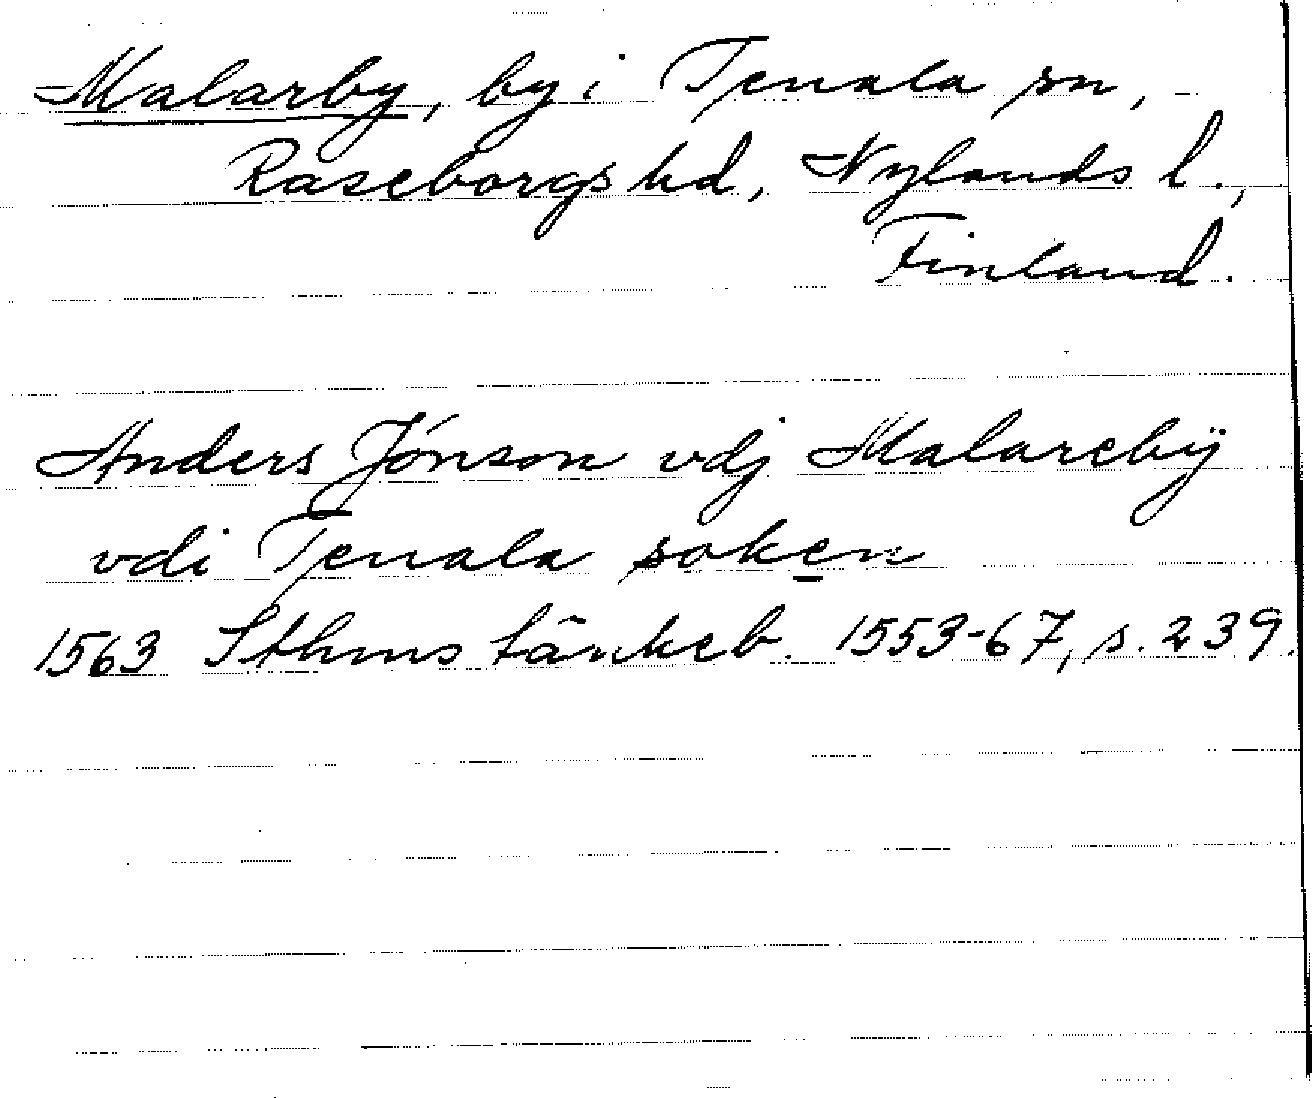 Malarby, by i Tenala sn,
Raseborgs hd, Nylands l.,
Finland.
Anders Jónson vdj Malarebÿ
vdi Tenala soken
1563 Sthms tänkeb. 1553-67, s. 239.